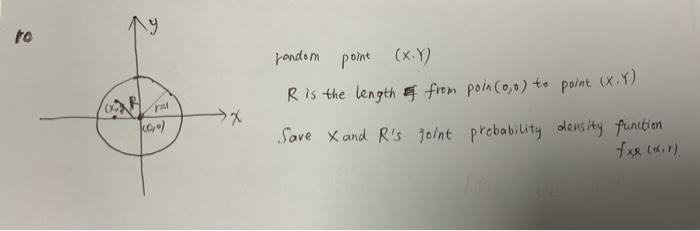 10
y
random point (X.Y)
R is the length from poin(0,0) to point (X.Y)
R
r=1
x
(0,0)
Save X and R's joint probability density function